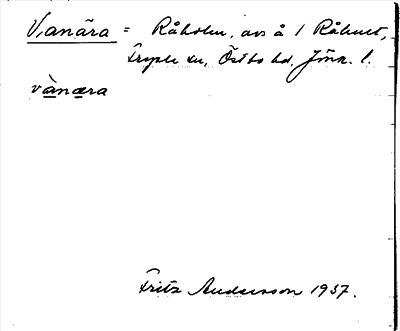 Vanära = Råholm, avs å 1 Råhult,
Fryele sn, Östbo hd. Jönk. l.
vànæra
Fritz Andersson 1937.